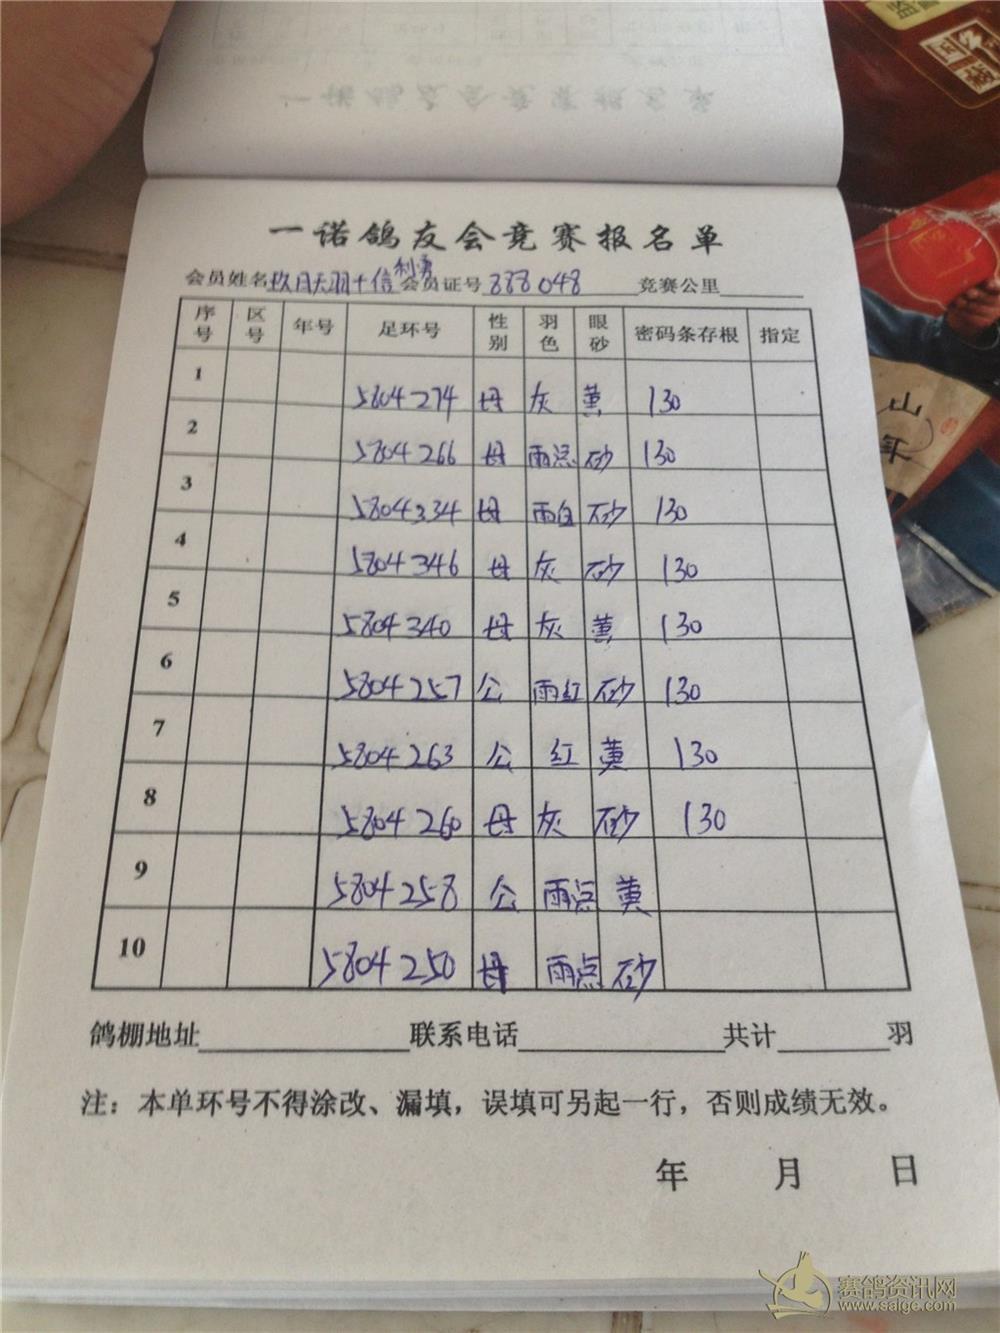 一诺鸽友会竞赛报名单
一诺鸽友会竞赛报名单
会员姓名玖月天羽+信利勇会员证号 888048 竞赛公里
序号 区号 年号 足环号 性别 羽色 眼砂 密码条存根 指定
1 5804274 母 灰 黄 130
2 5804266 母 雨点 砂 130
3 5804334 母 雨白 砂 130
4 5804346 母 灰 砂 130
5 5804340 母 灰 黄 130
6 5804257 公 雨红 砂 130
7 5804263 公 红 黄 130
8 5804260 母 灰 砂 130
9 5804258 公 雨点 黄
10 5804250 母 雨点 砂
鸽棚地址 联系电话 共计 羽
注：本单环号不得涂改、漏填，误填可另起一行，否则成绩无效。
年 月 日
山
年
赛鸽资讯网
www.saige.com